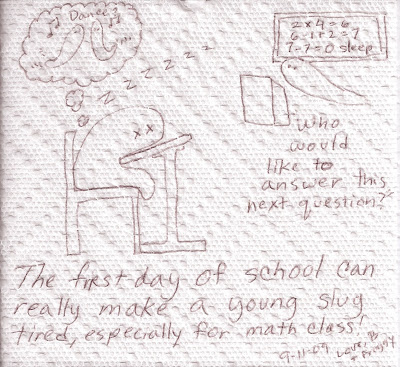 Dance
zzzzzzz
2x4=6
6-1+2=7
7-7=0 sleep
Who
would
like to
answer this
next question?
The first day of school can
really make a young slug
tired, especially for math class!
9-11-09
Love, B